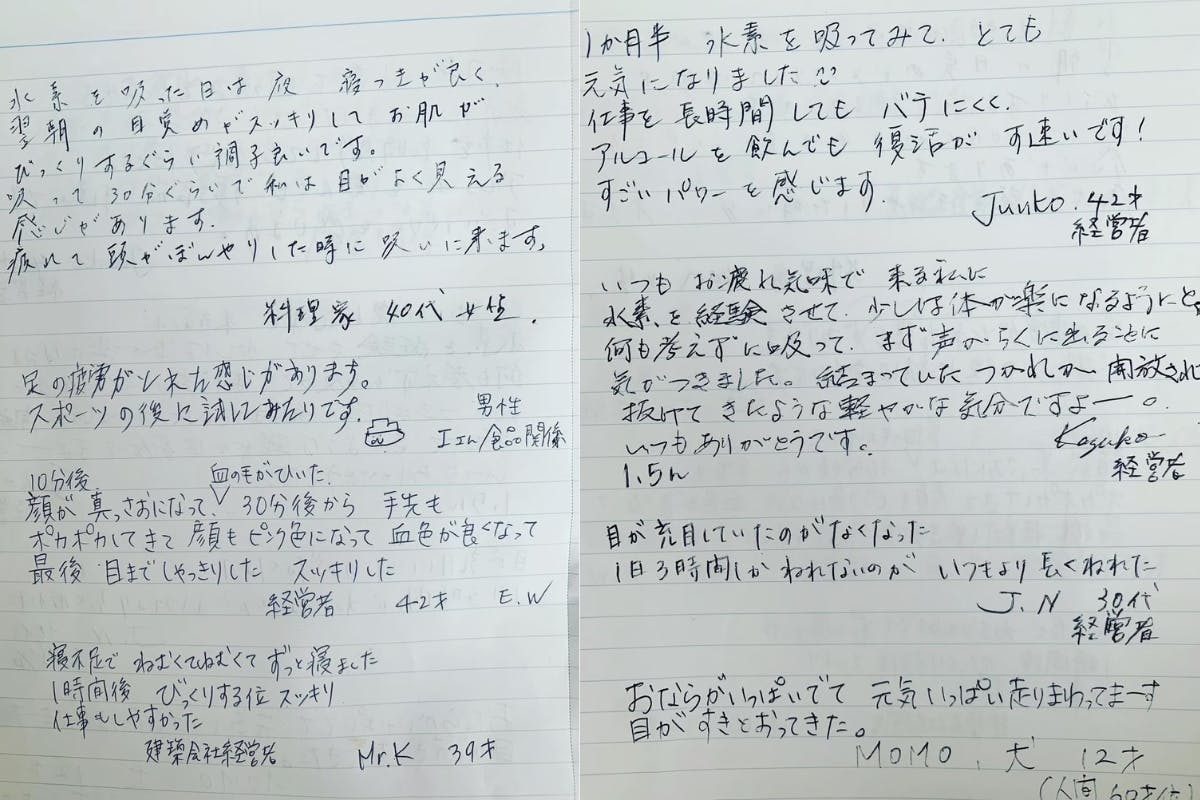 水素を吸った日は夜 寝つきが良く、
翌朝の目覚めがスッキリして お肌が
びっくりするぐらい調子良いです。
吸って30分ぐらいで私は目がよく見える
感じがあります。
疲れて頭がぼんやりした時に吸いに来ます。
料理家 40代 女性.
足の疲労がとれた感じがあります。
スポーツの後に試してみたいです。
男性
食品関係
10分後
血の毛がひいた
顔が真っさおになって、30分後から 手先も
ポカポカしてきて 顔もピンク色になって 血色が良くなって
最後 目までしゃっきりした スッキリした
経営者 42才 E.W
寝不足で ねむくてねむくて ずっと寝ました
1時間後 びっくりする位 スッキリ
仕事もしやすかった
建築会社経営者 Mr.K 39才
1か月半 水素を吸ってみて. とても
元気になりました
仕事を長時間しても バテにくく.
アルコールを飲んでも 復活が す速いです!
すごいパワーを感じます.
Junko. 42才
経営者
いつも お疲れ気味で 来る私に
水素、を経験させて. 少しは体が楽になるようにと、
何も考えずに吸って. まず声がらくに出ることに
気がつきました。結まっていた つかれが 開放され
抜けてきたような軽やかな気分ですよー。
いつもありがとうです。
1.5h
経営者
目が充目していたのがなくなった
1日3時間しか ねれないのが いつもより 長くねれた
J.N 30代
経営者
おならがいっぱいでて 元気いっぱい走りまわってまーす
目がすきとおってきた。
MOMO. 犬 12才
(人間 60才位)